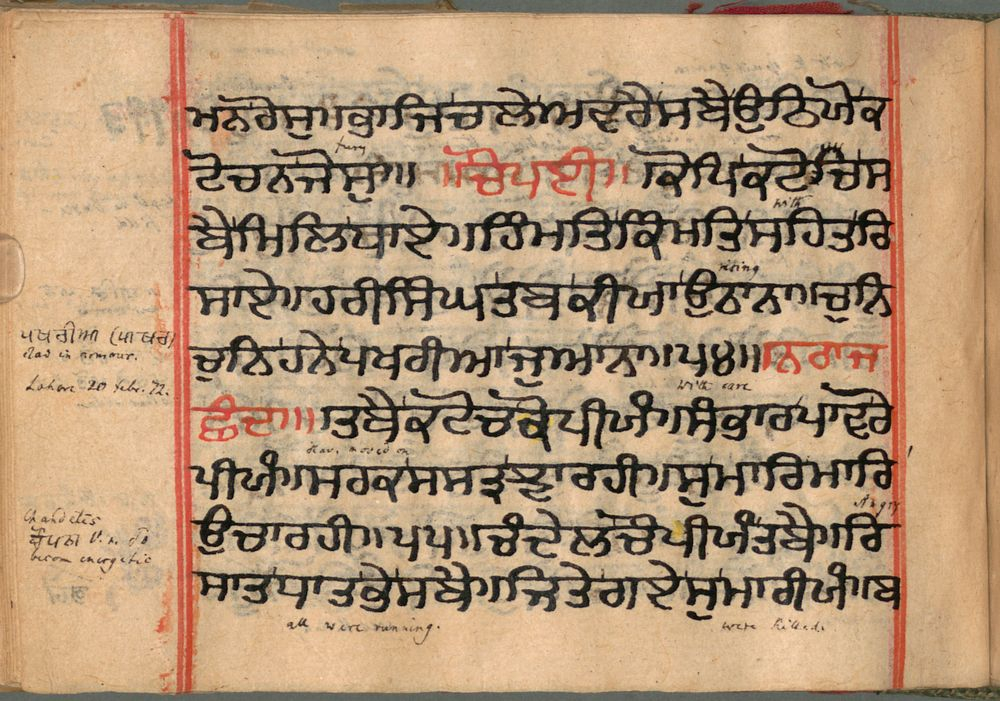 ਮਨਰੋਸੁ॥ਭਾਜਿਚਲੇਅਵਰੇਸਬੈਉਠਿਖੋਕ
ਟੋਚਨਜੋਸੁ॥ ॥ਚੌਪਈ॥ ਕੋਪਿਕਟੋਚਿਸ
ਬੈਮਿਲਿਧਾਏ॥ਹਿੰਮਤਿਕਿੰਮਤਿਸਹਿਤਰਿ
ਸਾਏ॥ਹਰੀਸਿੰਘਤਬਕੀਯਾਉਠਾਨਾ॥ਚੁਨਿ
ਚੁਨਿਹਨੇਪਖਰੀਆਜੁਆਨਾ॥੫੪॥ਨਰਾਜ
ਛੰਦ॥ ॥ਤਬੈਕਟੋਚਕੋਪੀਯੰ॥ਸੰਭਾਰਪਾਵਰੋ
ਪੀਯੰ॥ਸਰਕਸਸੜਝਾਰਹੀ॥ਸੁਮਾਰਿਮਾਰਿ
ਉਚਾਰਹੀ॥੫੫॥ਚੰਦੇਲਚੌਪੀਯੰਤਬੈ॥ਰਿ
ਸਾਤਧਾਤਭੇਸਬੈ॥ਜਿਤੇਗਏਸੁਮਾਰੀਯੰ॥ਬ
fury
with
rising
with care
have moved on
Angry
all were running.
were killed.
ਪਖਰੀਆ (ਪਾਖਰ)
clad in armour.
Lahore 20 Febr. 72.
Chandêles
ਚੌਪਨਾ v. n. to
becom energetic